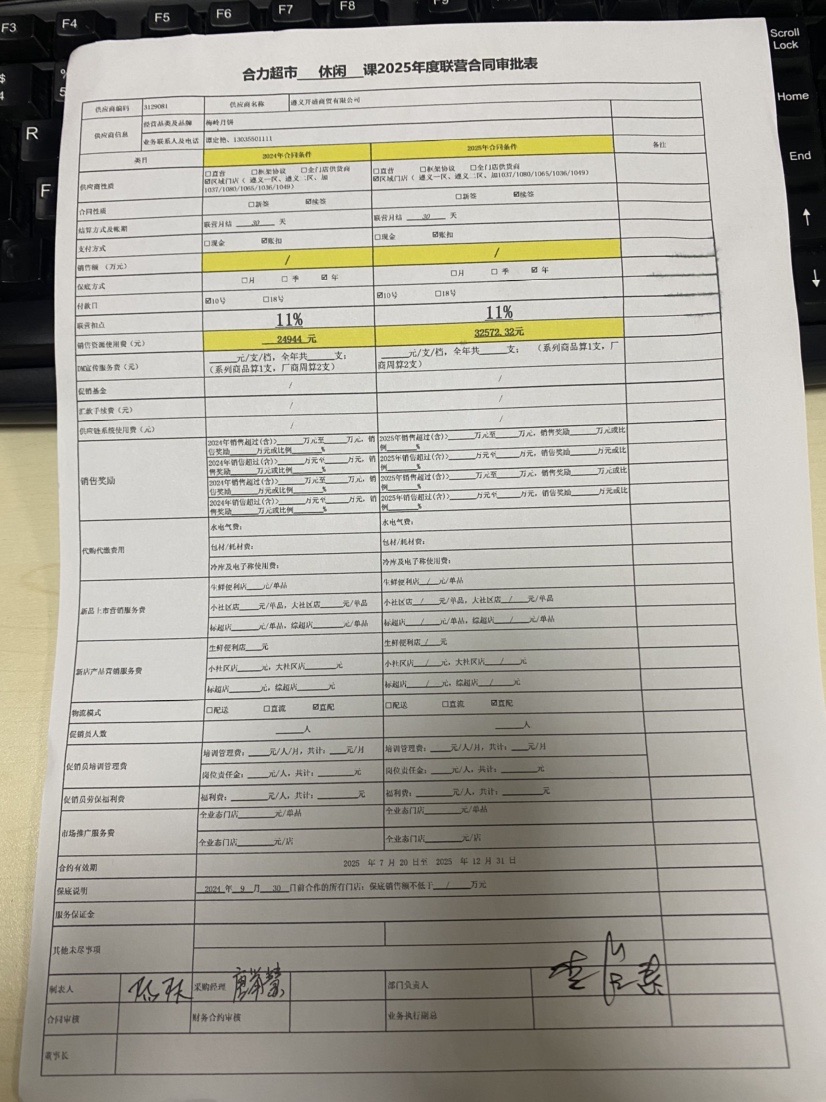 F3 F4 F5 F6 F7 F8 F9
Scroll Lock
Home
End
R
F
合力超市 休闲 课2025年度联营合同审批表
供应商编码 3129081 供应商名称 遵义开盛商贸有限公司
供应商信息 经营品类及品牌 梅岭月饼
业务联系人及电话 谭定艳、13035501111
类目 2024年合同条件 2025年合同条件 备注
供应商性质 □直营 □框架协议 □全门店供货商 □直营 □框架协议 □全门店供货商
☑区域门店（ 遵义一区、遵义二区、加1037/1080/1065/1036/1049） ☑区域门店（ 遵义一区、遵义二区、加1037/1080/1065/1036/1049）
合同性质 □新签 ☑续签 □新签 ☑续签
结算方式及账期 联营月结 30 天 联营月结 30 天
支付方式 □现金 ☑账扣 □现金 ☑账扣
销售额（万元） / /
保底方式 □月 □季 ☑年 □月 □季 ☑年
付款日 ☑10号 □18号 ☑10号 □18号
联营扣点 11% 11%
销售资源使用费（元） 24944 元 32572.32元
DM宣传服务费（元） ____元/支/档，全年共____支；（系列商品算1支，厂商周算2支） ____元/支/档，全年共____支；（系列商品算1支，厂商周算2支）
促销基金 / /
汇款手续费（元） / /
供应链系统使用费（元） / /
销售奖励
2024年销售超过(含)>____万元至____万元，销售奖励____万元或比例____% 2025年销售超过(含)>____万元至____万元，销售奖励____万元或比例____%
2024年销售超过(含)>____万元至____万元，销售奖励____万元或比例____% 2025年销售超过(含)>____万元至____万元，销售奖励____万元或比例____%
2024年销售超过(含)>____万元至____万元，销售奖励____万元或比例____% 2025年销售超过(含)>____万元至____万元，销售奖励____万元或比例____%
2024年销售超过(含)>____万元至____万元，销售奖励____万元或比例____% 2025年销售超过(含)>____万元至____万元，销售奖励____万元或比例____%
代购代缴费用 水电气费： 水电气费：
包材/耗材费： 包材/耗材费：
冷库及电子称使用费： 冷库及电子称使用费：
新品上市营销服务费 生鲜便利店____元/单品 生鲜便利店 / 元/单品
小社区店____元/单品，大社区店____元/单品 小社区店 / 元/单品，大社区店 / 元/单品
标超店____元/单品，综超店____元/单品 标超店 / 元/单品，综超店 / 元/单品
新店产品营销服务费 生鲜便利店____元 生鲜便利店 / 元
小社区店____元，大社区店____元 小社区店 / 元，大社区店 / 元
标超店____元，综超店____元 标超店 / 元，综超店 / 元
物流模式 □配送 □直流 ☑直配 □配送 □直流 ☑直配
促销员人数 ____人 ____人
促销员培训管理费 培训管理费：____元/人/月，共计：____元/月 培训管理费：____元/人/月，共计：____元/月
岗位责任金：____元/人，共计：____元 岗位责任金：____元/人，共计：____元
促销员劳保福利费 福利费：____元/人，共计：____元 福利费：____元/人，共计：____元
市场推广服务费 全业态门店____元/单品 全业态门店____元/单品
全业态门店____元/店 全业态门店____元/店
合约有效期 2025 年 7 月 20 日至 2025 年 12 月 31 日
保底说明 2024 年 9 月 30 日前合作的所有门店：保底销售额不低于 / 万元
服务保证金
其他未尽事项
制表人 采购经理 部门负责人
合同审核 财务合约审核 业务执行副总
董事长